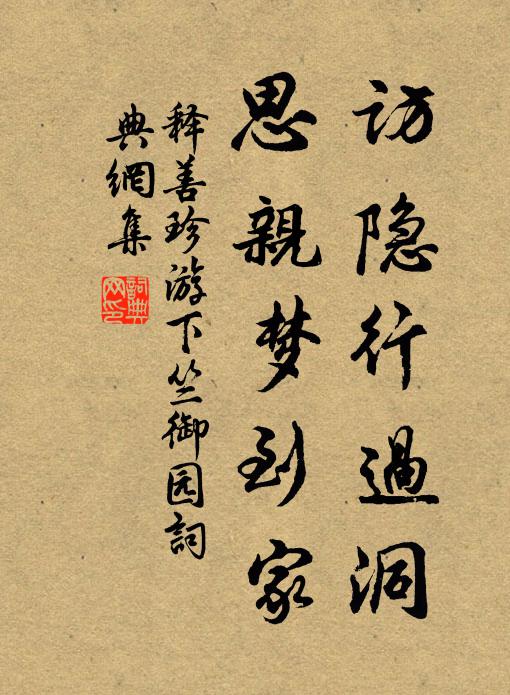 访隐行過洞
思親梦到家
释善珍游下竺御园詞
典網集
詞典网印